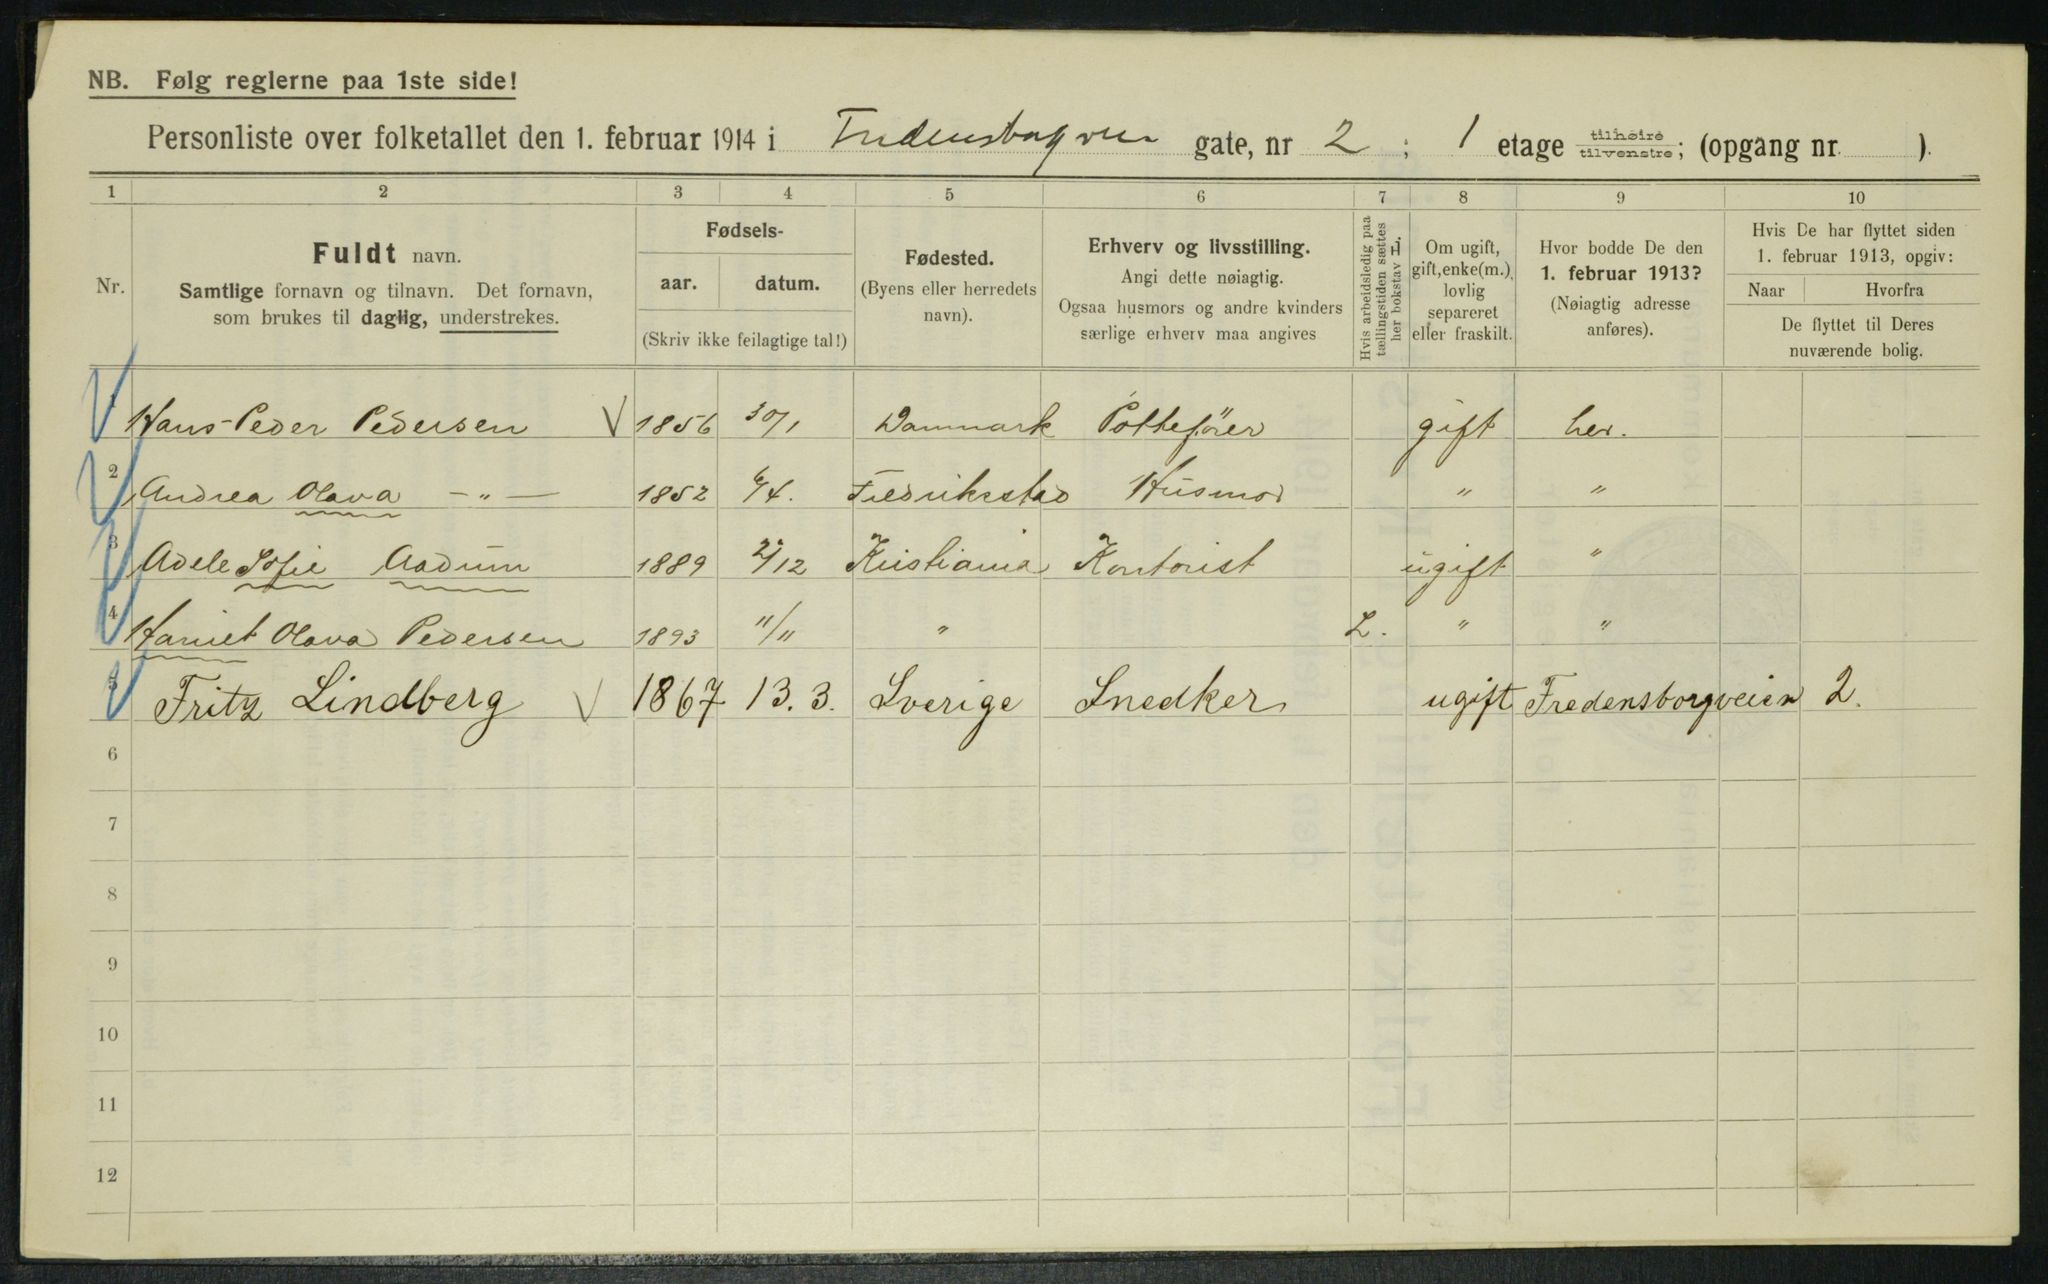 NB. Følg reglerne paa 1ste side!
Personliste over folketallet den 1. februar 1914 i Fredensborgveien gate, nr 2 ; 1 etage tilhøire tilvenstre; (opgang nr. ).
1 2 3 4 5 6 7 8 9 10
Nr.
Fuldt navn.
Samtlige fornavn og tilnavn. Det fornavn,
som brukes til daglig, understrekes.
Fødsels-
aar. datum.
(Skriv ikke feilagtige tal!)
Fødested.
(Byens eller herredets
navn).
Erhverv og livsstilling.
Angi dette nøiagtig.
Ogsaa husmors og andre kvinders
særlige erhverv maa angives
Hvis arbeidsledig paa
tællingstiden sættes
her bokstav L.
Om ugift,
gift, enke(m.),
lovlig
separeret
eller fraskilt.
Hvor bodde De den
1. februar 1913?
(Nøiagtig adresse
anføres).
Hvis De har flyttet siden
1. februar 1913, opgiv:
Naar Hvorfra
De flyttet til Deres
nuværende bolig.
1 Hans-Peder Pedersen 1856 30/1 Danmark Pottefører gift her.
2 Andrea Olava — „ — 1852 6/4. Fredrikstad Husmor „ „
3 Adele Sofie Aadum 1889 2/12 Kristiania Kontorist ugift „
4 Harriet Olava Pedersen 1893 11/11 „ L. „ „
5 Fritz Lindberg 1867 13. 3. Sverige Snedker ugift Fredensborgveien 2.
6
7
8
9
10
11
12